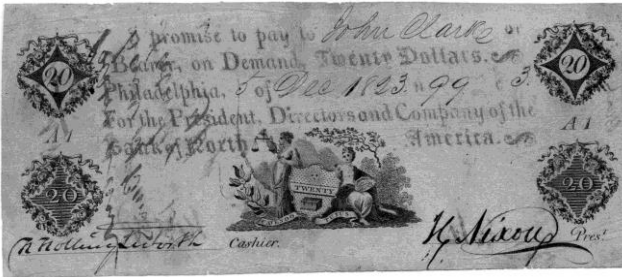 I promise to pay to John Clarke or
Bearer, on Demand, Twenty Dollars.
Philadelphia, 5 of Dec 1823. N 99 3.
For the President, Directors and Company of the
Bank of North America.
20
20
A 1
A 1
20
20
TWENTY
H Hollingsworth Cashier.
H Nixon Presᵗ